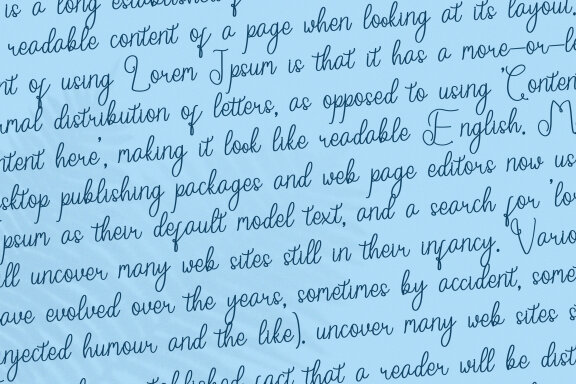 is a long established f
readable content of a page when looking at its layout.
nt of using Lorem Ipsum is that it has a more-or-le
rmal distribution of letters, as opposed to using 'Conten
ntent here', making it look like readable English. M
sktop publishing packages and web page editors now us
psum as their default model text, and a search for 'lo
ill uncover many web sites still in their infancy. Vario
ave evolved over the years, sometimes by accident, some
njected humour and the like). uncover many web sites s
tablished fact that a reader will be dist